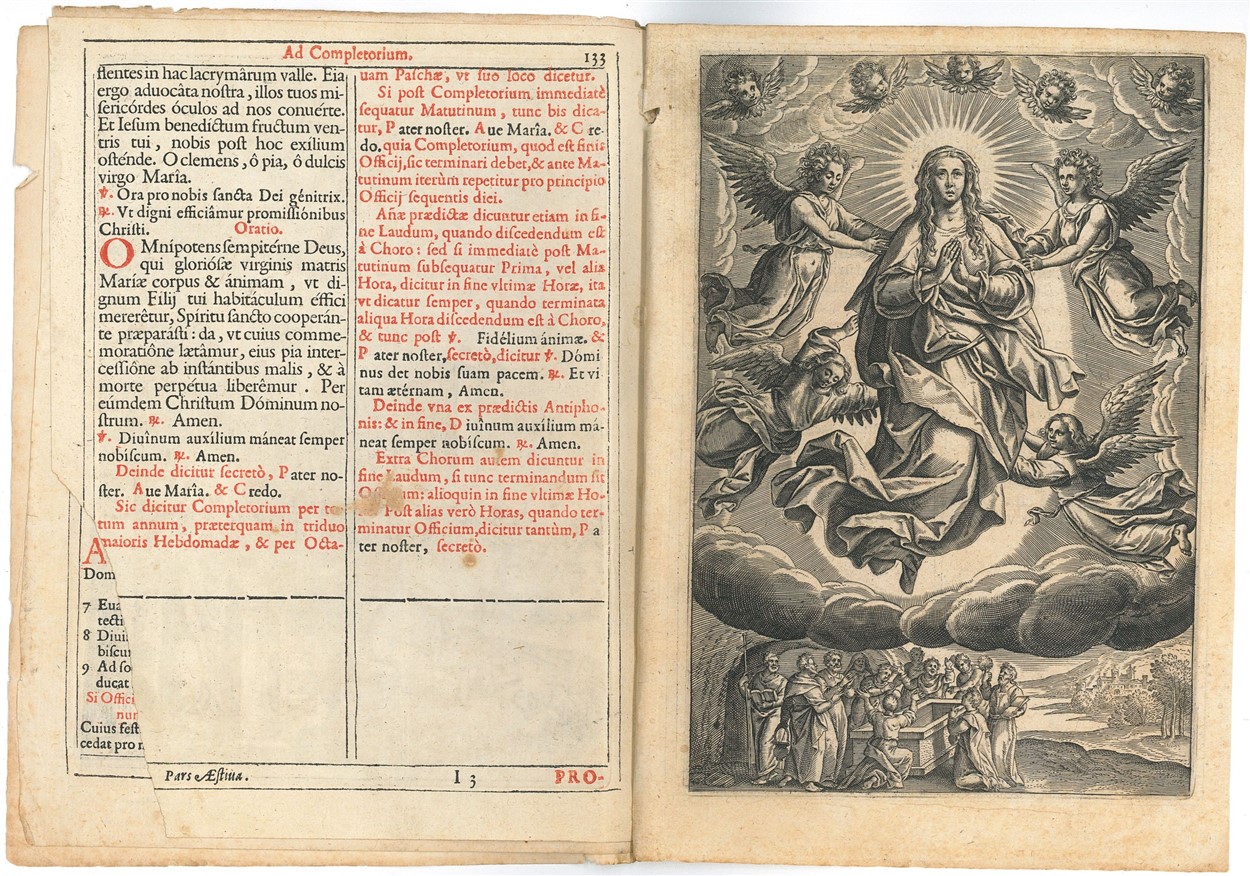 Ad Completorium.
133
flentes in hac lacrymârum valle. Eia
ergo aduocâta nostra, illos tuos mi-
sericórdes óculos ad nos conuérte.
Et Iesum benedictum fructum ven-
tris tui, nobis post hoc exilium
osténde. O clemens, ô pia, ô dulcis
virgo Marîa.
℣. Ora pro nobis sancta Dei génitrix.
℟. Vt digni efficiâmur promissiónibus
Christi.
Oratio.
OMnípotens sempitérne Deus,
qui gloriósæ virginis matris
Maríæ corpus & ánimam, vt di-
gnum Filij tui habitáculum éffici
mererêtur, Spíritu sancto cooperán-
te præparásti: da, vt cuius comme-
moratióne lætâmur, eius pia inter-
cessióne ab instántibus malis, & à
morte perpétua liberêmur. Per
eúmdem Christum Dóminum no-
strum. ℟. Amen.
℣. Diuînum auxílium máneat semper
nobíscum. ℟. Amen.
Deinde dicitur secretò, Pater no-
ster. Aue Marîa. & Credo.
Sic dicitur Completorium per to
tum annum, præterquam in triduo
maioris Hebdomadæ, & per Octa-
A
Dom
7 Eua
tecti
8 Diui
biscu
9 Ad so
ducat
Si Offici
nur
Cuius fest
cedat pro
uam Paschæ, vt suo loco dicetur.
Si post Completorium immediatè
sequatur Matutinum, tunc bis dica-
tur, Pater noster. Aue Marîa. & Cre-
do. quia Completorium, quod est finis
Officij, sic terminari debet, & ante Ma-
tutinum iterùm repetitur pro principio
Officij sequentis diei.
Añæ prædictæ dicuntur etiam in fi-
ne Laudum, quando discedendum est
à Choro: sed si immediatè post Ma-
tutinum subsequatur Prima, vel alia
Hora, dicitur in fine vltimæ Horæ, ita
vt dicatur semper, quando terminata
aliqua Hora discedendum est à Choro,
& tunc post ℣. Fidélium ánimæ. &
Pater noster, secretò, dicitur ℣. Dómi
nus det nobis suam pacem. ℟. Et vi
tam ætérnam, Amen.
Deinde vna ex prædictis Antipho-
nis: & in fine, Diuînum auxílium má-
neat semper nobíscum. ℟. Amen.
Extra Chorum autem dicuntur in
fine Laudum, si tunc terminandum sit
alioquin in fine vltimæ Ho-
Post alias verò Horas, quando ter-
minatur Officium, dicitur tantùm, Pa
ter noster, secretò.
Pars Æstiua.
I 3
PRO-